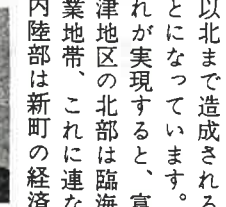 以北まで造成される
とになっています。
れが実現すると、富
津地区の北部は臨海
業地帯、これに連な
内陸部は新町の経済